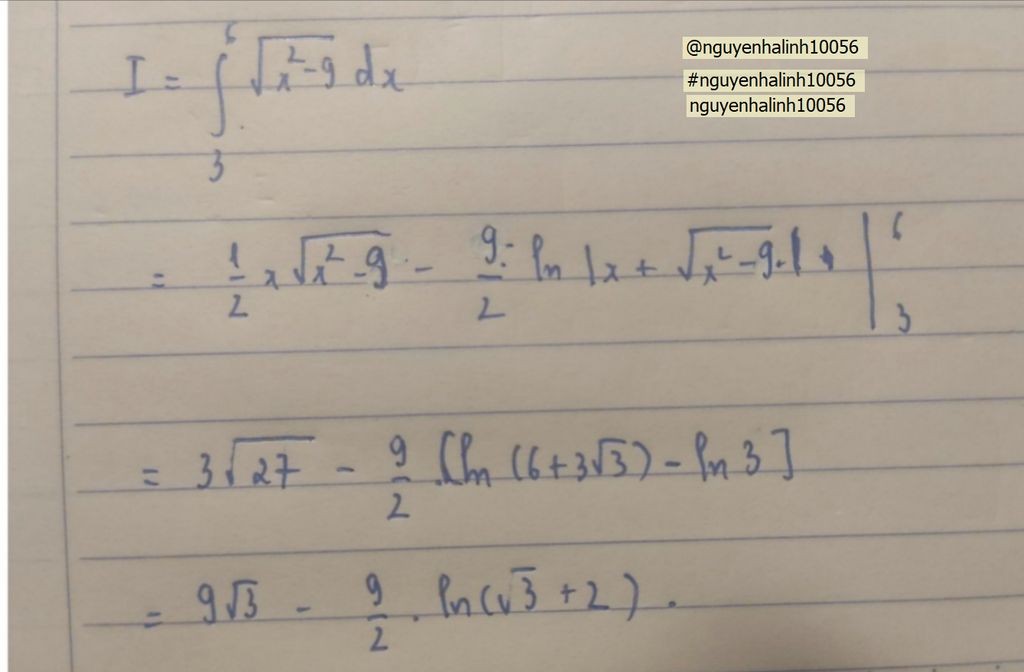 I = ∫₃⁶ √(x²-9) dx
@nguyenhalinh10056
#nguyenhalinh10056
nguyenhalinh10056
= 1/2 x √(x²-9) - 9/2 . ln |x + √(x²-9)| |₃⁶
= 3√27 - 9/2 . [ln (6+3√3) - ln 3]
= 9√3 - 9/2 . ln(√3 + 2) .